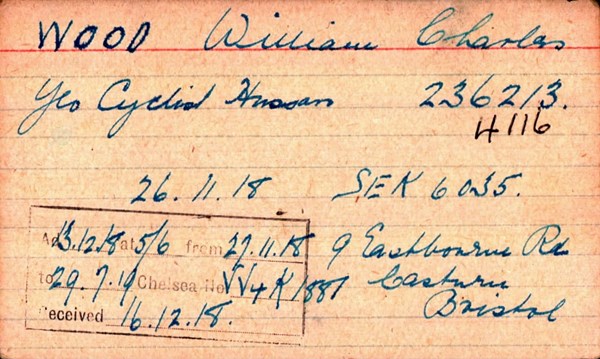 WOOD William Charles
Glo Cyclist Hussars 236213.
4116
26.11.18 SEK 6035.
13.12.18 at 5/6 from 27.11.18 9 Eastbourne Rd
to 29.7.19 Chelsea No Eastern
Received 16.12.18. Bristol